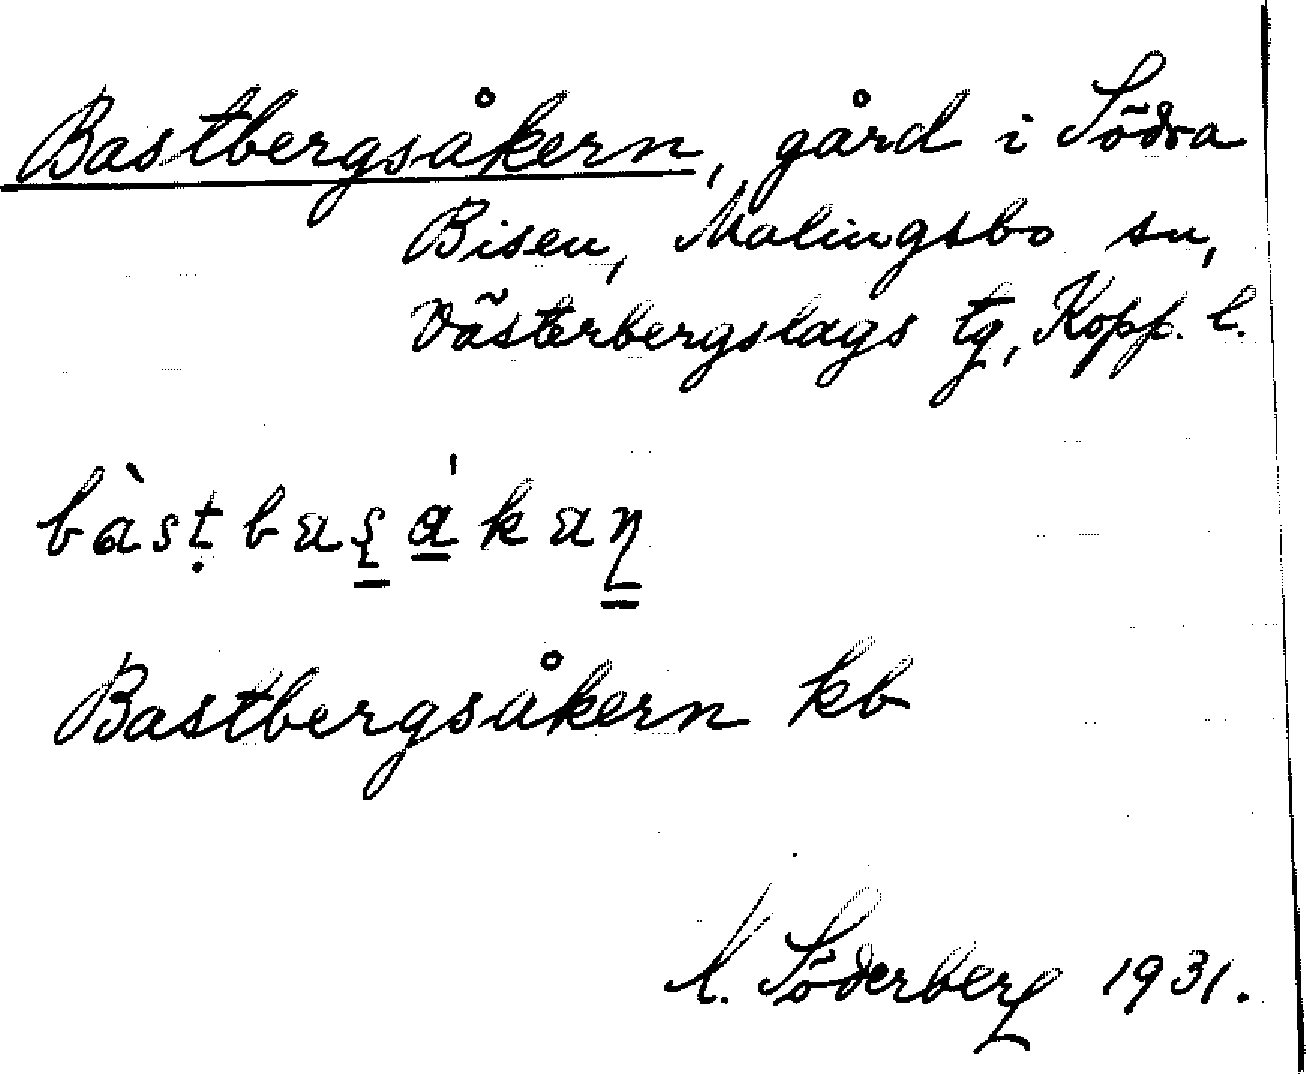 Bastbergsåkern, gård i Södra
Bisen, Malingsbo sn,
Västerbergslags tg, Kopp. l.
bàsṭbas̱a̱̍kaṉ
Bastbergsåkern kb
Söderberg 1931.